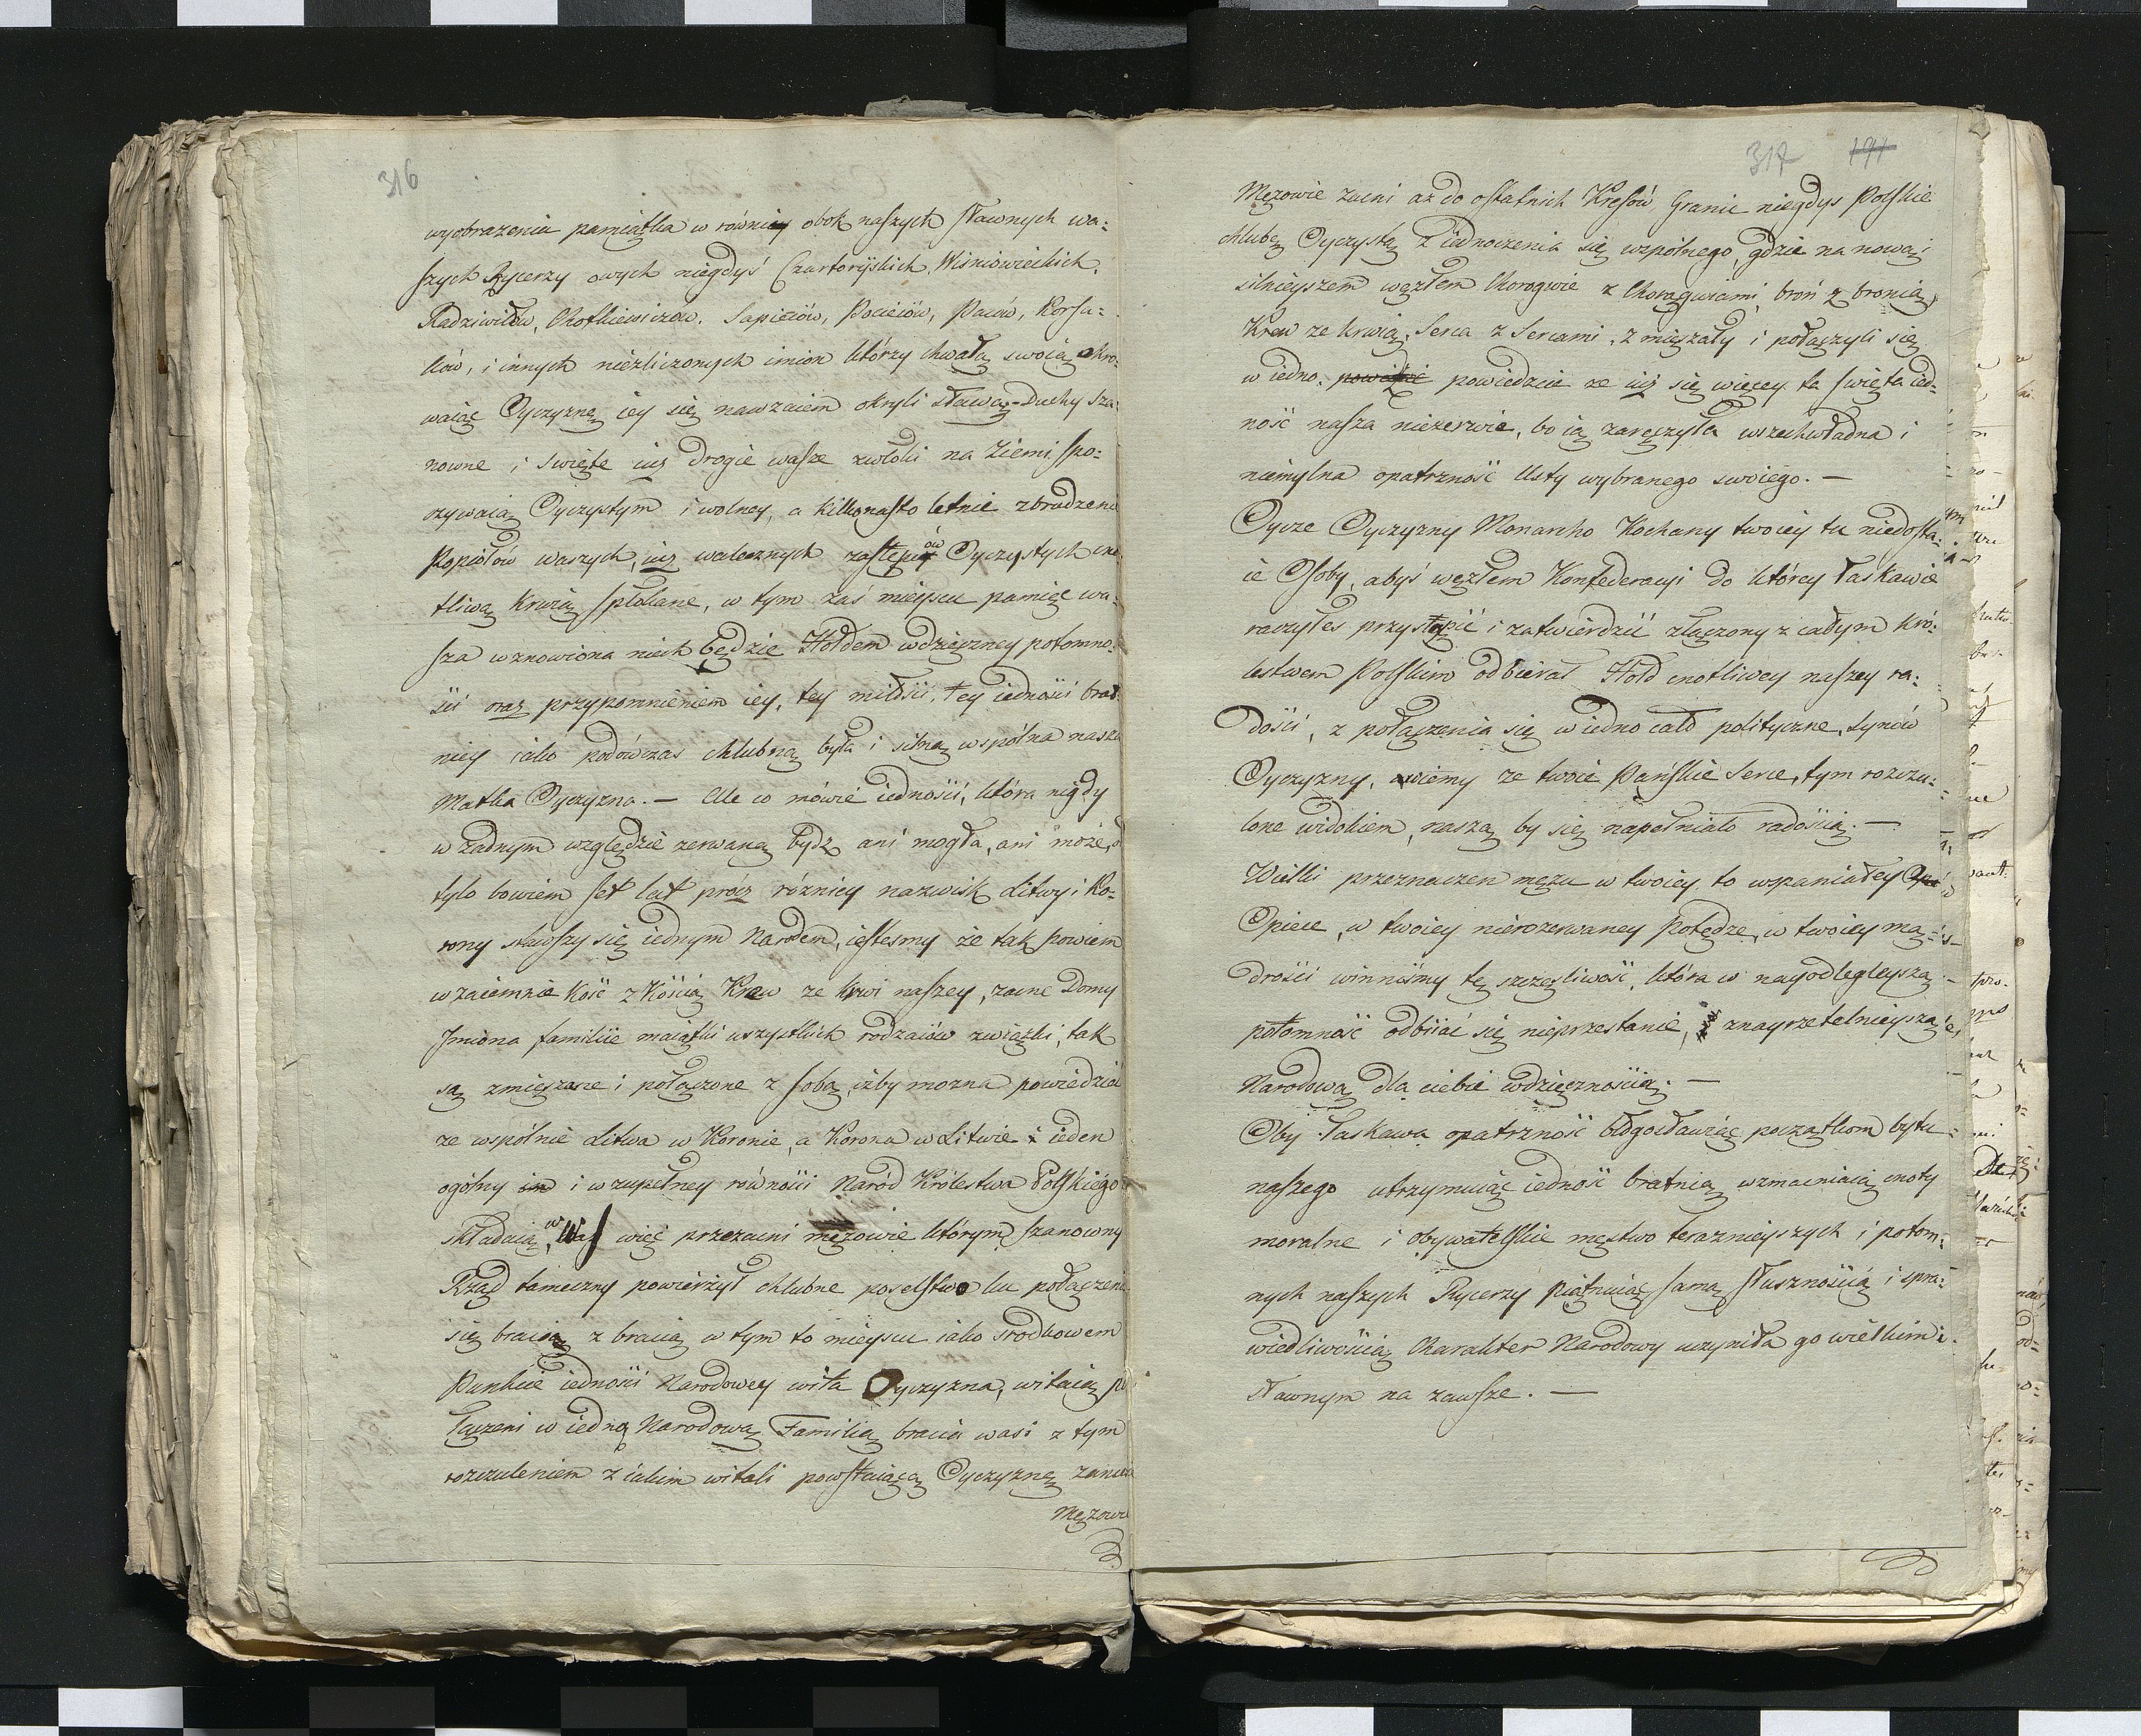 316
wyobrażenia pamiątka w równiey obok naszych sławnych wa=
szych Rycerzy owych niegdyś Czartoryskich, Wiśniowieckich,
Radziwiłów, Chotkiewiczów, Sapiehów, Pociejów, Paców, Korsa=
ków, i innych niezliczonych imion którzy chwałą swoią okry=
waiąc Oyczyznę iey się nawzaiem okryli sławą – Duchy sza=
nowne i święte iuż drogie wasze zwłoki na Ziemi spo=
czywaią Oyczystym i wolney, a kilkonasto letnie
Popiołów waszych, iuż walecznych zastępów Oyczystych cno
tliwą krwią spłókane, w tym zaś mieyscu pamięć wa=
sza wznowiona niech będzie Hołdem wdzięczney potomno=
ści oraz przypomnieniem iey, tey miłości, tey iedności brat=
niey iako podówczas chlubną była i silną wspólna nasza
Matka Oyczyzna. — Ale co mówię iedności, która nigdy
w żadnym względzie zerwaną bydź ani mogła, ani może, od
tylo bowiem set lat prócz różnicy nazwisk Litwy i Ko=
rony stawszy się iednym Narodem, iesteśmy że tak powiem
wzaiemnie Kość z Kością Krew ze krwi naszey, zacne Domy
Imiona familiie maiątki wszystkich rodzaiów związki, tak
są zmieszane i połączone z sobą, iżby można powiedzieć
że wspólnie Litwa w Koronie, a Korona w Litwie i ieden
ogólny i w zupełney równości Naród Królestwa Polskiego
składaią, Was więc przezacni mężowie którym szanowny
Rząd tameczny powierzył chlubne poselstwo ku połączeniu
się bracią z bracią w tym to mieyscu iako srodkowem
Punkcie iedności Narodowey wita Oyczyzna, witaią po
łączeni w iedną Narodową Familią bracia wasi z tym
rozczuleniem z iakim witali powstaiącą Oyczyznę
Mężowie
317 191
Mężowie zacni aż do ostatnich Kresów Granic niegdys Polskie
chlubę Oyczystą z iednoczenia się wspólnego, gdzie na nowo i
silnieyszem węzłem Chorągwie z Chorągwiami broń z bronią,
Krew ze krwią, Serca z Sercami, zmięszały i połączyli się
w iedno. powiedzcie że iuż się więcey ta święta ied=
ność nasza niezerwie, bo ią zaręczyła wszechwładna i
niemylna opatrzność Usty wybranego swoiego. —
Oycze Oyczyzny Monarcho Kochany twoiey tu niedosta=
ie Osoby, abyś węzłem Konfederacyi do którey łaskawie
raczyłes przystąpić i zatwierdzić złączony z całym Kró=
lestwem Polskim odbierał Hołd cnotliwey naszey ra=
dości, z połączenia się w iedno całó polityczne, synów
Oyczyzny, wiemy że twoie Pańskie Serce, tym rozczu=
lone widokiem, naszą by się napełniało radością. —
Wielki przeznaczeń mężu w twoiey to wspaniałey
Opiece, w twoiey nierozerwaney Potędze, w twoiey mą=
drości winniśmy tę szczęśliwość, która w nayodlegleyszą
potomność odbiiać się nieprzestanie, z nayrzetelnieyszą
Narodową dla ciebie wdzięcznością. —
Oby łaskawa opatrzność błogosławiąc początkom bytu
naszego utrzymuiąc iedność bratnią, wzmacniaiąc cnoty
moralne i obywatelskie męstwo teraznieyszych i potom=
nych naszych Rycerzy piątnuiąc samą słusznością i spra=
wiedliwością Charakter Narodowy uczyniła go wielkim i
sławnym na zawsze. —